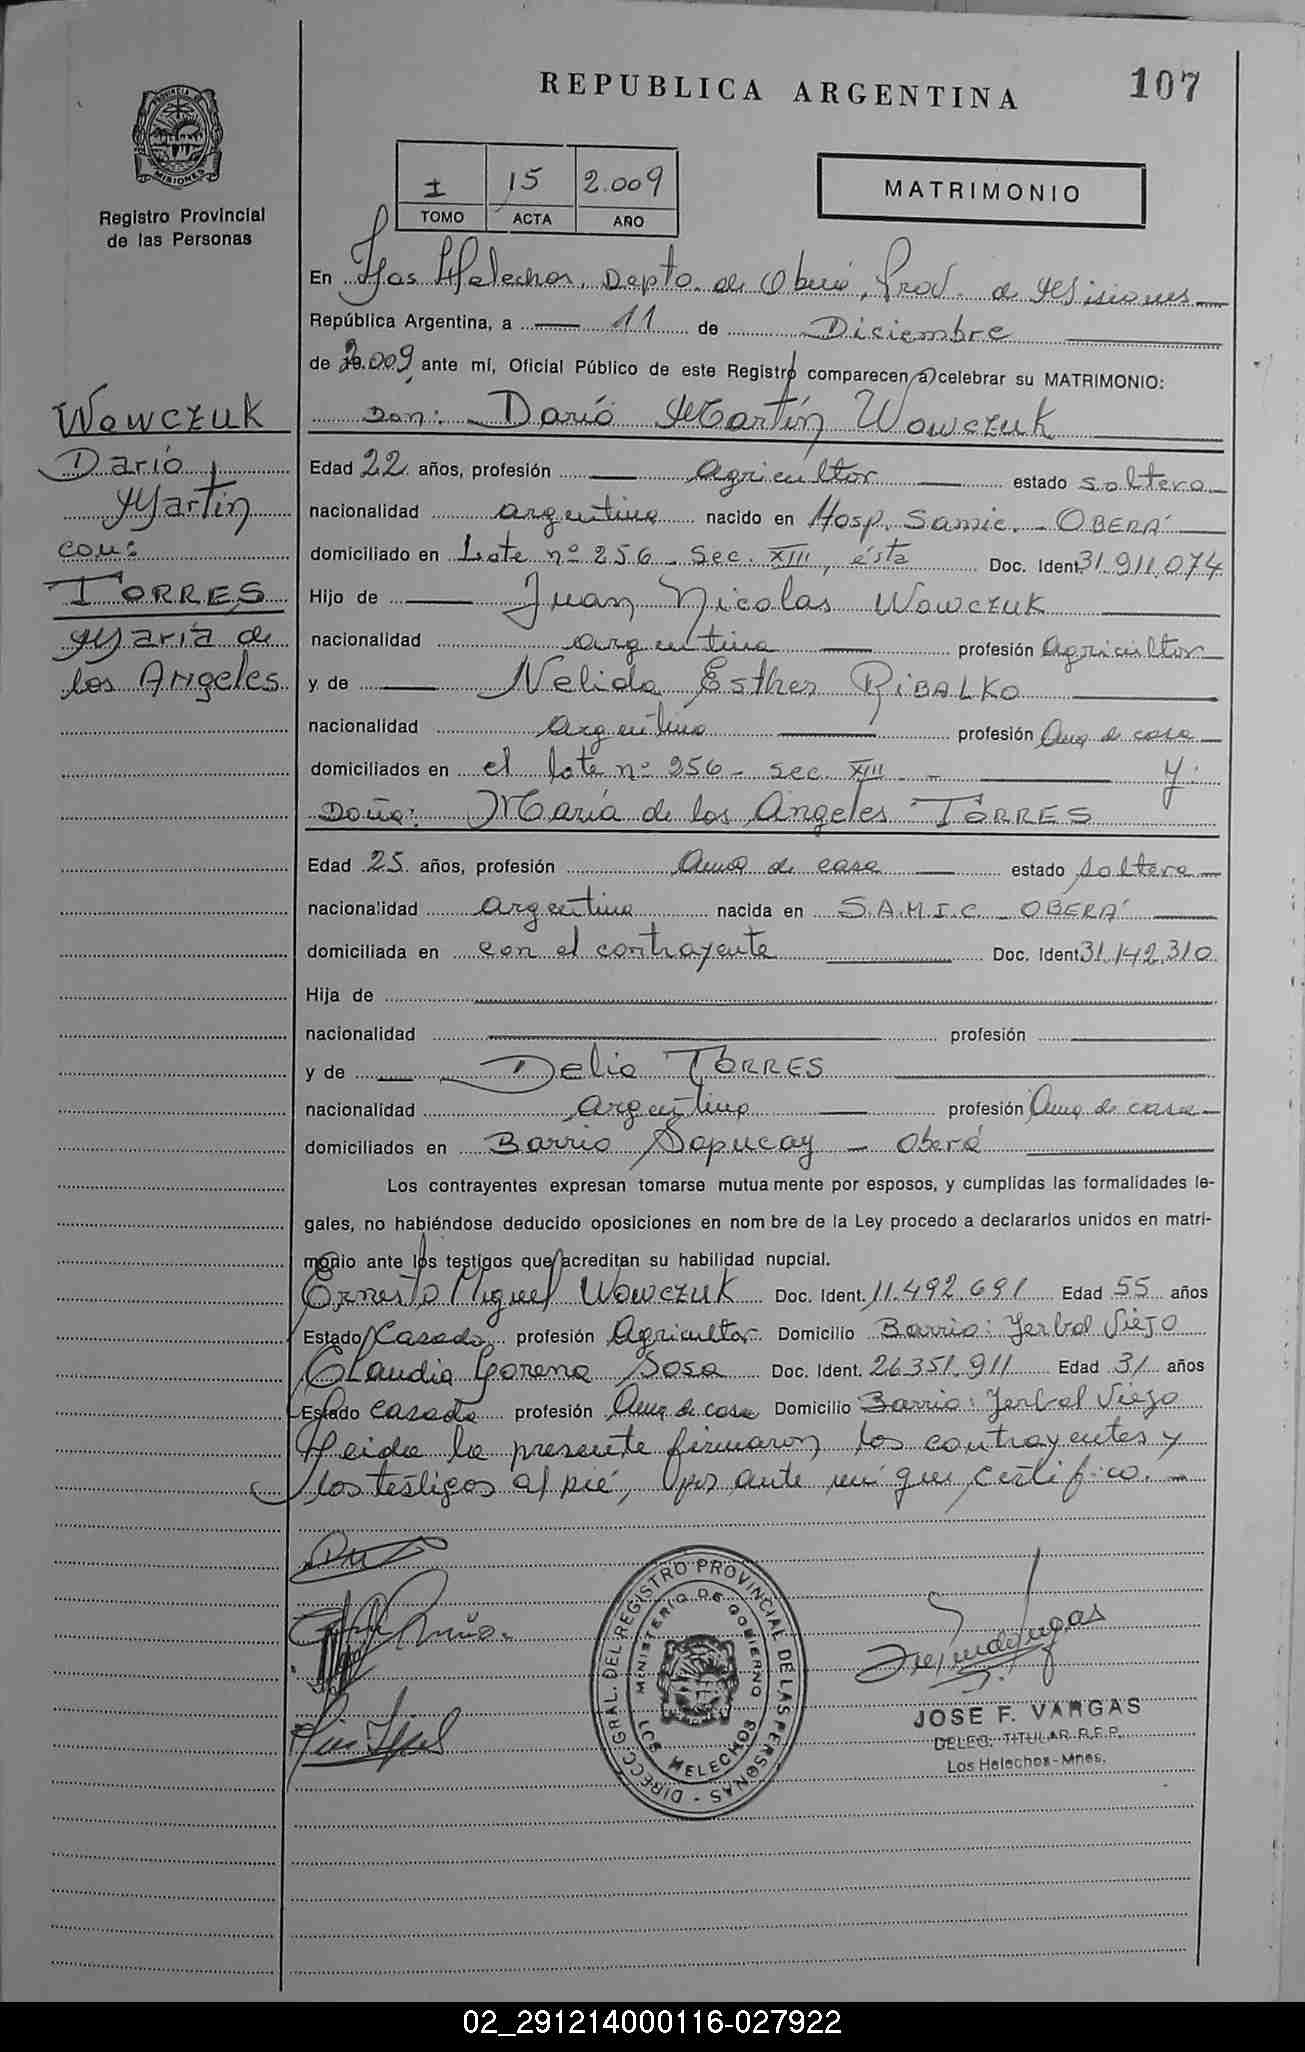 REPUBLICA ARGENTINA
107
PROVINCIA DE
MISIONES
Registro Provincial
de las Personas
I 15 2.009
TOMO ACTA AÑO
MATRIMONIO
En Los Helechos, Depto. de Oberá, Prov. de Misiones
República Argentina, a 11 de Diciembre
de 2.009 ante mí, Oficial Público de este Registro comparecen a celebrar su MATRIMONIO:
Don: Darío Martín Wowczuk
Wowczuk
Darío
Martín
con:
TORRES
María de
los Angeles
Edad 22 años, profesión Agricultor estado soltero
nacionalidad argentina nacido en Hosp. Samic. - OBERÁ
domiciliado en Lote nº 256 - Sec. XIII, ésta Doc. Ident. 31.911.074
Hijo de Juan Nicolas Wowczuk
nacionalidad argentina profesión Agricultor
y de Nelida Esther RIBALKO
nacionalidad Argentina profesión Ama de casa
domiciliados en el lote nº 256 - sec XIII - y:
Doña: María de los Angeles TORRES
Edad 25 años, profesión Ama de casa estado soltera
nacionalidad argentina nacida en S.A.M.I.C - OBERÁ
domiciliada en con el contrayente Doc. Ident. 31.142.310
Hija de
nacionalidad profesión
y de Delia TORRES
nacionalidad Argentina profesión Ama de casa
domiciliados en Barrio Sapucay - Oberá
Los contrayentes expresan tomarse mutua mente por esposos, y cumplidas las formalidades le-
gales, no habiéndose deducido oposiciones en nom bre de la Ley procedo a declararlos unidos en matri-
monio ante los testigos que acreditan su habilidad nupcial.
Ernesto Miguel Wowczuk Doc. Ident. 11.492.691 Edad 55 años
Estado Casado profesión Agricultor Domicilio Barrio: Yerbal Viejo
Claudia Lorena Sosa Doc. Ident. 26.351.911 Edad 31 años
Estado casada profesión Ama de casa Domicilio Barrio: Yerbal Viejo
Leida la presente firmaron los contrayentes y
los testigos al pié, por ante mí que certifico.
DIRECC. GRAL. DEL REGISTRO PROVINCIAL DE LAS PERSONAS -
MINISTERIO DE GOBIERNO
LOS HELECHOS
JOSE F. VARGAS
DELEG. TITULAR R.P.P.
Los Helechos - Mnes.
02_291214000116-027922